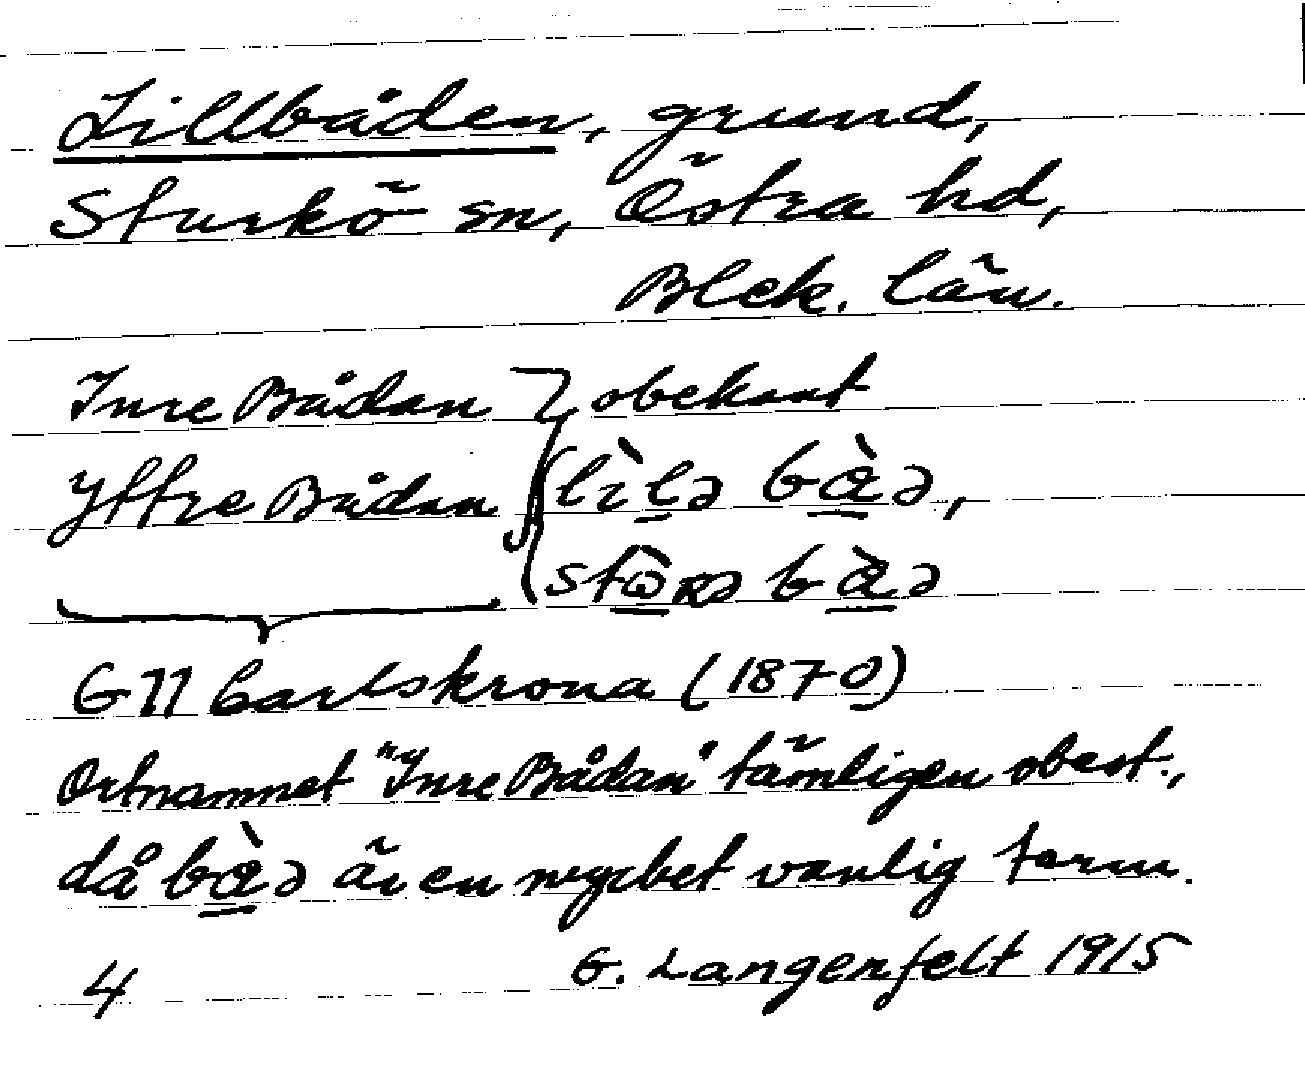 Lillbåden, grund,
Sturkö sn, Östra hd,
Blek. län.
Inre Bådan } obekant
Yttre Bådan { lìlə bàə,
stòrə bàə
G11 Carlskrona (1870)
Ortnamnet "Inre Bådan" tämligen obest.,
då bàə är en mycket vanlig term.
4 G. Langenfelt 1915